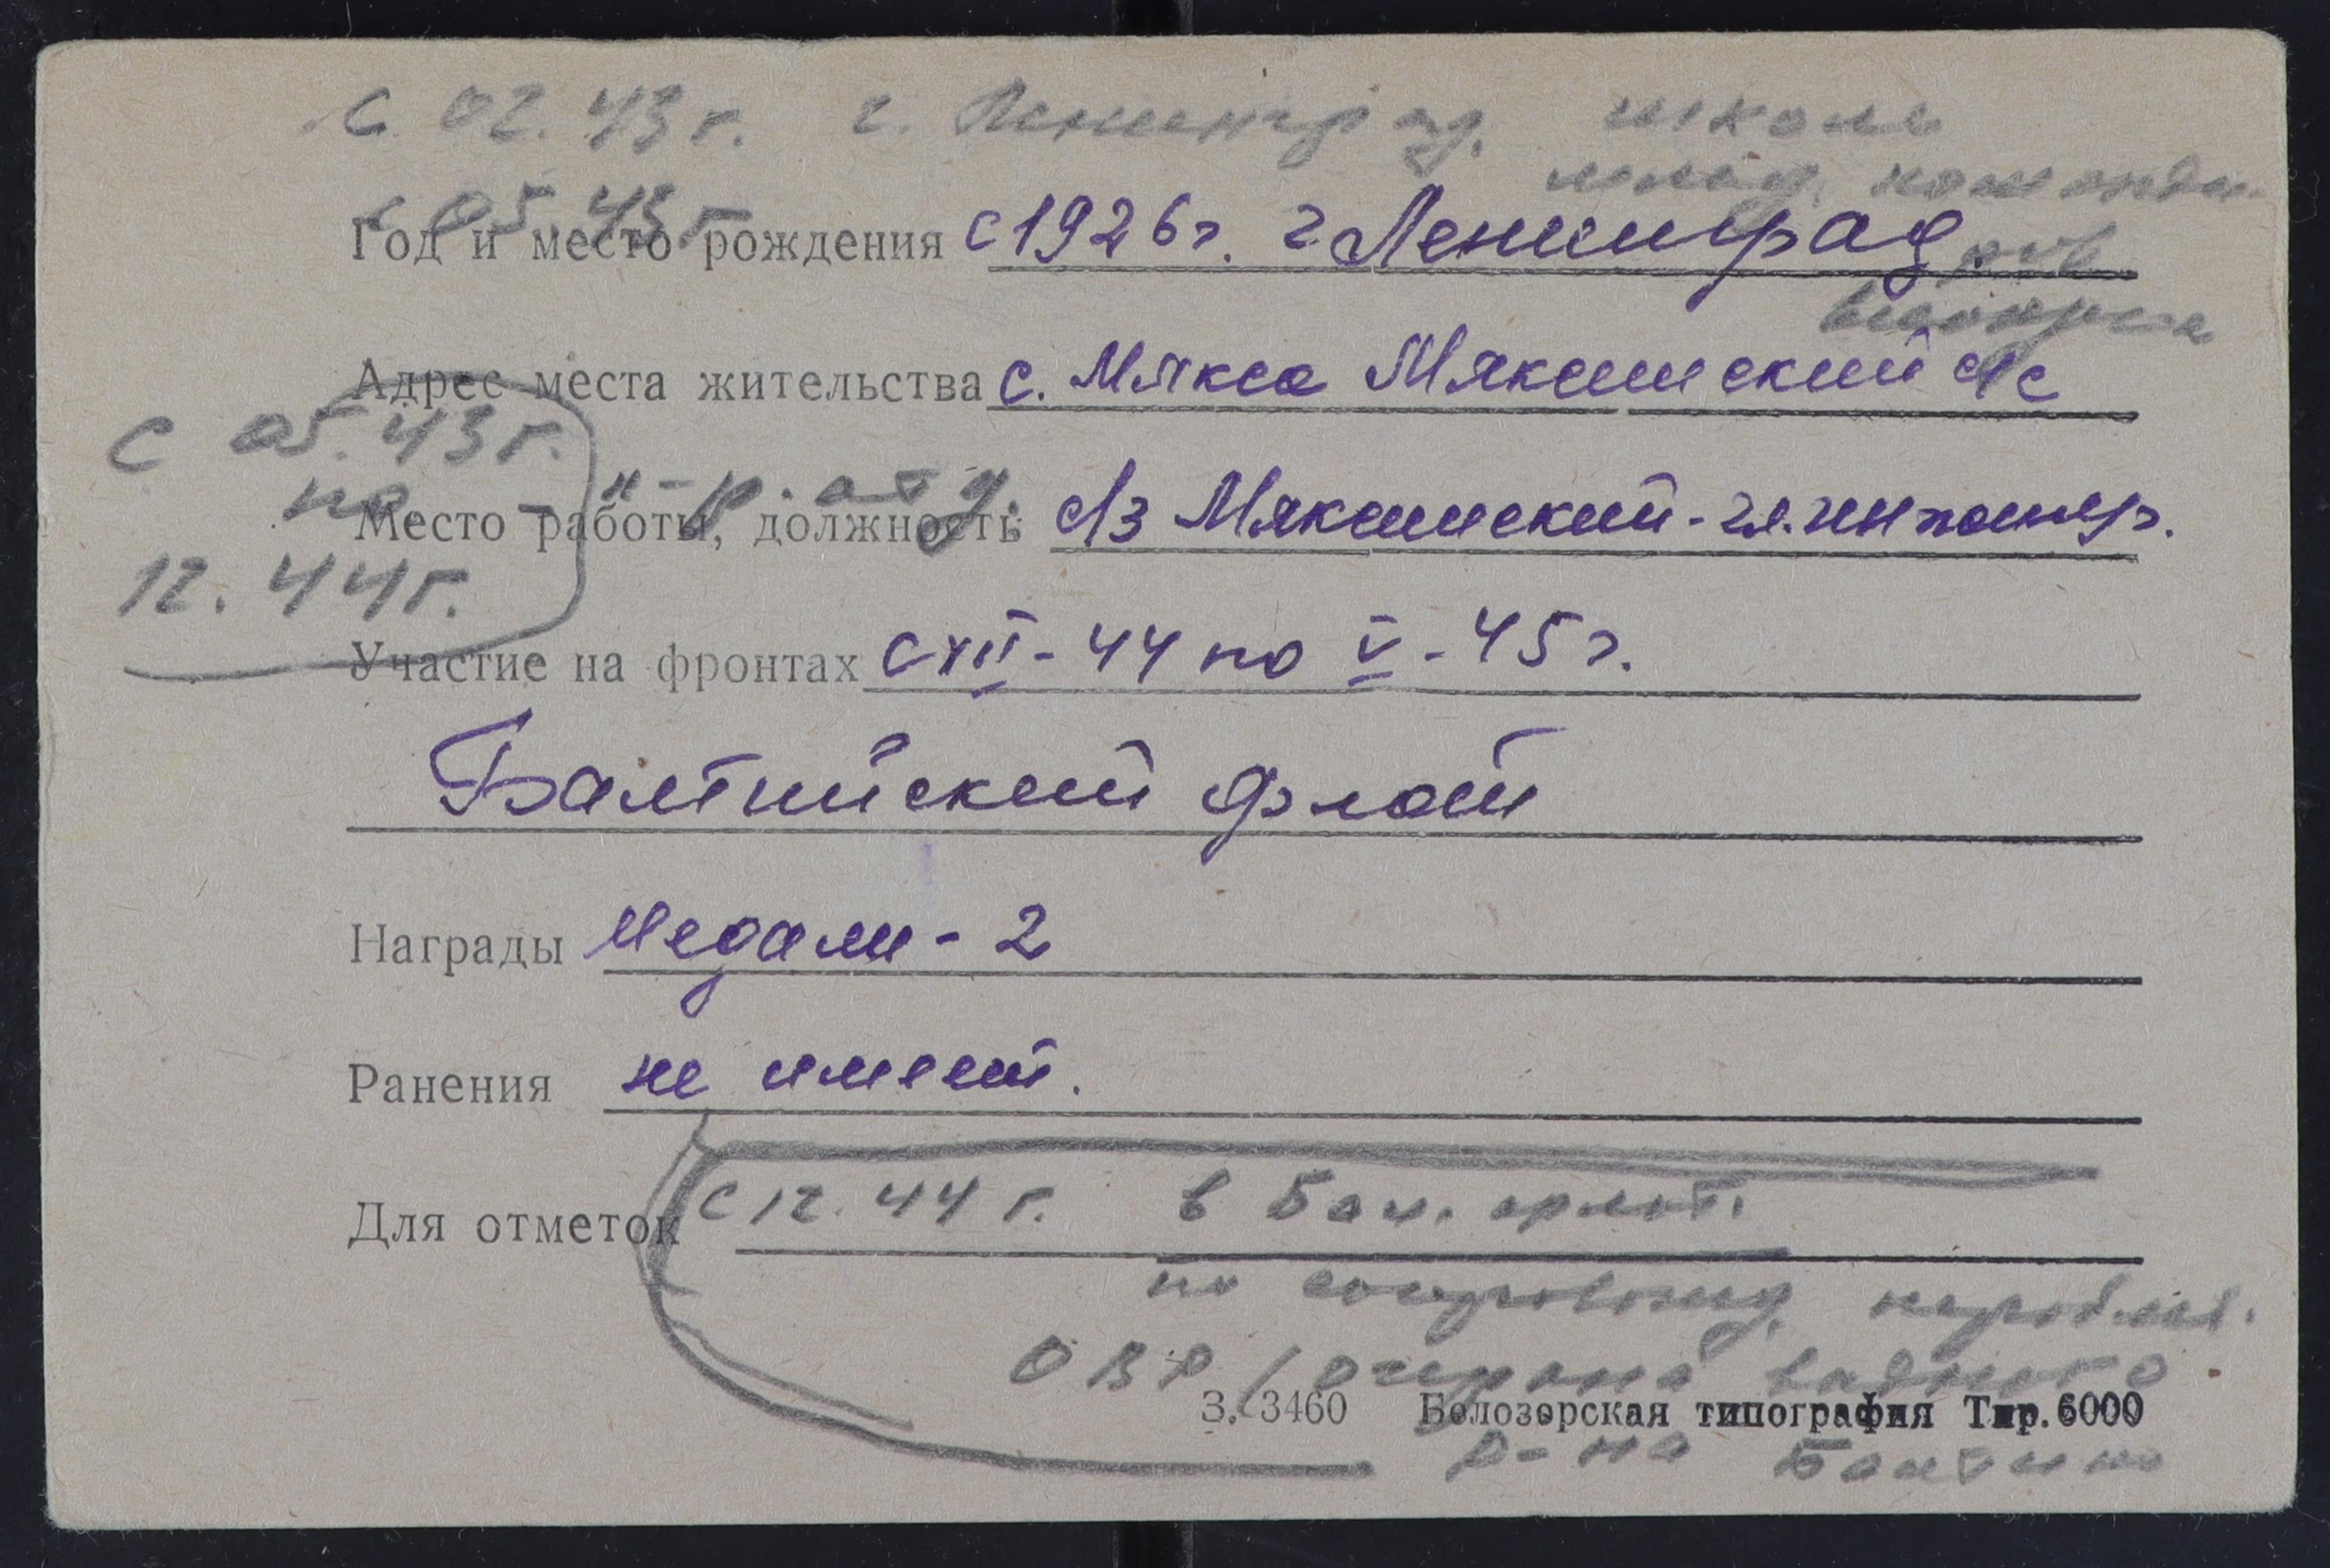 с 02.43 г. г. Ленинград. школа
млад. команди-
с 05.43 г.
Год и место рождения с 1926 г. г Ленинград
ров
Адрес места жительства с. Мякса Мяксинский с/с
с 05.43 г.
по - " - р. отд.
Место работы, должность с/з Мяксинский - гл. инженер.
12.44 г.
Участие на фронтах с XII - 44 по V - 45 г.
Балтийский флот
Награды Медали - 2
Ранения не имеет.
Для отметок с 12.44 г. в Бал. флот.
по сопровожд. кораблей.
ОВР / охрана водного
З. 3460 Белозерская типография Тир. 6000
р-на Балтики